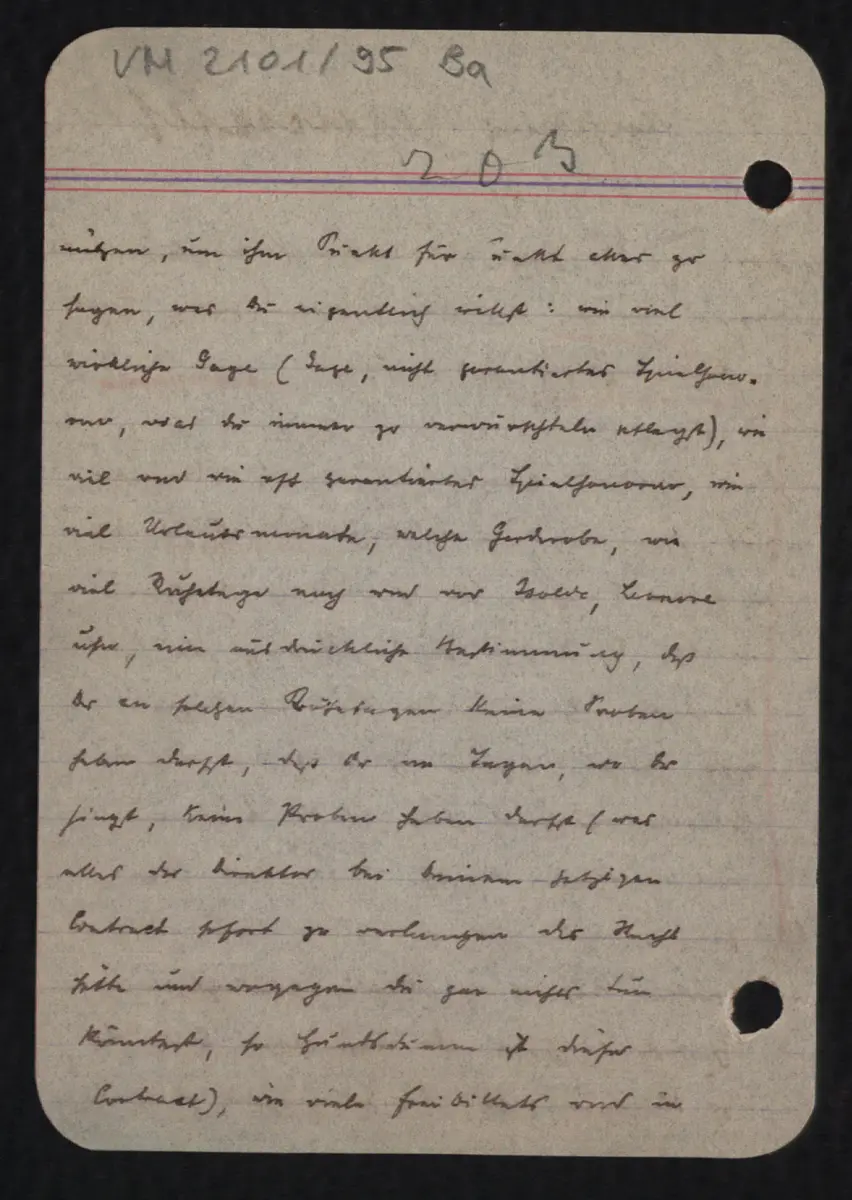 VM 2101/95 Ba
203
nützen, um ihm Punkt für Punkt etwas zu
sagen, was Du eigentlich willst: wie viel
wirkliche Gage (Gage, nicht garantiertes Spielhono-
rar, was du immer zu verwurschteln pflegst), wie
viel und wie oft garantiertes Spielhonorar, wie
viel Urlaubsmonate, welche Garderobe, wie
viel Ruhetage nach und vor Isolde, Leonore
usw, eine ausdrückliche Bestimmung, daß
Du an solchen Ruhetagen keine Proben
haben darfst, daß Du an Tagen, wo Du
singst, keine Proben haben darfst (was
alles der Direktor bei Deinem jetzigen
Contract sofort zu verlangen das Recht
hätte und wogegen du gar nichts tun
könntest, so hundsdumm ist dieser
Contract), wie viele Freibillets und in